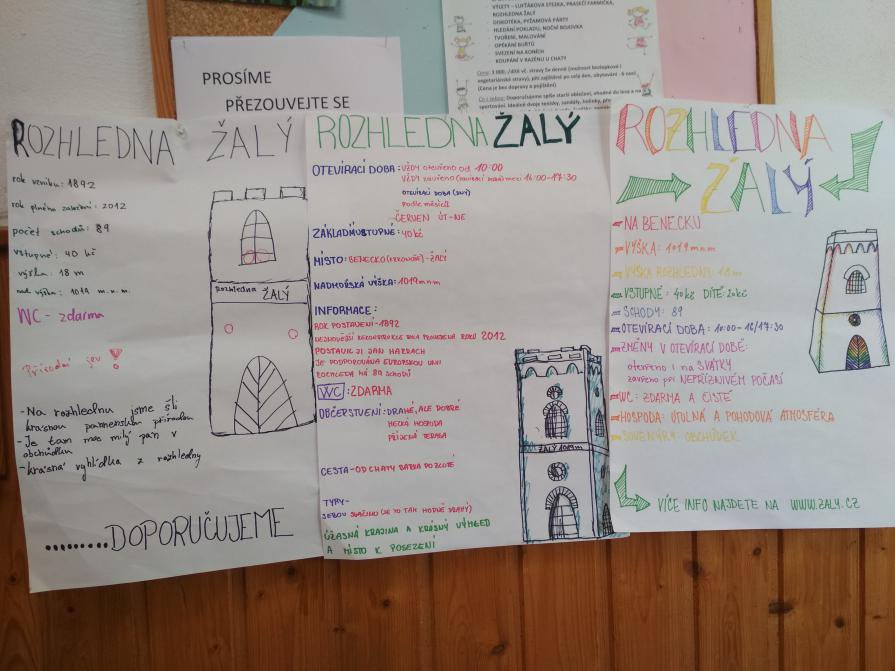 VÝLETY - LUFŤÁKOVA STEZKA, PRASEČÍ FARMIČKA,
ROZHLEDNA ŽALÝ
DISKOTÉKA, PYŽAMOVÁ PÁRTY
HLEDÁNÍ POKLADU, NOČNÍ BOJOVKA
TVOŘENÍ, MALOVÁNÍ
OPÉKÁNÍ BUŘTŮ
SVEZENÍ NA KONÍCH
KOUPÁNÍ V BAZÉNU U CHATY
PROSÍME
PŘEZOUVEJTE SE
ROZHLEDNA ŽALÝ
rok vzniku: 1892
rok plného založení: 2012
počet schodů: 89
vstupné: 40 kč
výška: 18 m
nad. výška: 1019 m.n.m.
WC - zdarma
Přírodní jev!
-Na rozhlednu jsme šli
krásnou
přírodou
-Je tam moc milý pan v
obchůdku
-krásná vyhlídka z rozhledny
.........DOPORUČUJEME
Rozhledna
ŽALÝ
ROZHLEDNA ŽALÝ
OTEVÍRACÍ DOBA: VŽDY otevřeno od 10:00
VŽDY zavřeno
mezi 16:00-17:30
OTEVÍRACÍ DOBA
Podle měsíců
ČERVEN ÚT-NE
40kč
MÍSTO: BENECKO
-ŽALÝ
NADMOŘSKÁ VÝŠKA: 1019mnm
INFORMACE:
ROK POSTAVENÍ-1892
ROKU 2012
POSTAVIL JI JAN HARRACH
JE PODPOROVÁNA EVROPSKOU UNIÍ
ROZHLEDA MÁ 89 SCHODŮ
WC: ZDARMA
OBČERSTVENÍ: DRAHÉ, ALE DOBRÉ
HEZKÁ HOSPODA
PĚKNÁ TERASA
CESTA-OD CHATY BÁRA PO ŽLUTÉ
TYPY-
SEBOU SVAČINO (JE TO TAM HODNĚ DRAHÝ)
ÚŽASNÁ KRAJINA A KRÁSNÝ VÝHLED
A MÍSTO K POSEZENÍ
ŽALÝ 1019m
ROZHLEDNA
ŽALÝ
NA BENECKU
VÝŠKA: 1019mnm
VÝŠKA ROZHLEDNY: 18m
VSTUPNÉ: 40kč DÍTĚ: 20kč
SCHODY: 89
OTEVÍRACÍ DOBA: 10:00-16/17:30
ZMĚNY V OTEVÍRACÍ DOBĚ:
otevřeno i na SVÁTKY
zavřeno při NEPŘÍZNIVÉM POČASÍ
WC: ZDARMA A ČISTÉ
HOSPODA: ÚTULNÁ A POHODOVÁ ATMOSFÉRA
SOUVENÝRY: OBCHŮDEK
VÍCE INFO NAJDETE NA WWW.ZALY.CZ